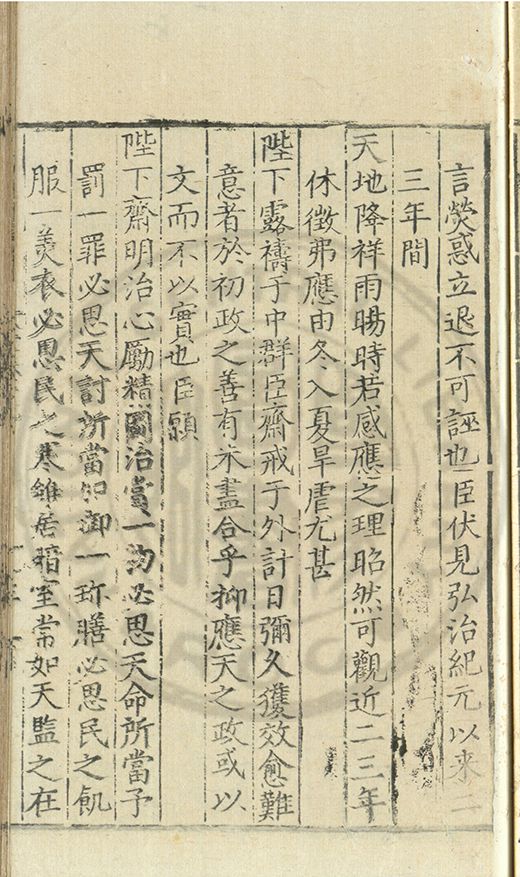 言熒惑立退不可誣也臣伏見弘治紀元以来二
三年間
天地降祥雨暘時若感應之理昭然可觀近二三年
休徵弗應由冬入夏旱虐尤甚
陛下露禱于中群臣齋戒于外計日彌久獲效愈難
意者於初政之善有未盡合乎抑應天之政或以
文而不以實也臣願
陛下齋明治心勵精圖治賞一功必思天命所當予
罰一罪必思天討所當加御一珎膳必思民之飢
服一美衣必思民之寒雖居暗室常如天監之在